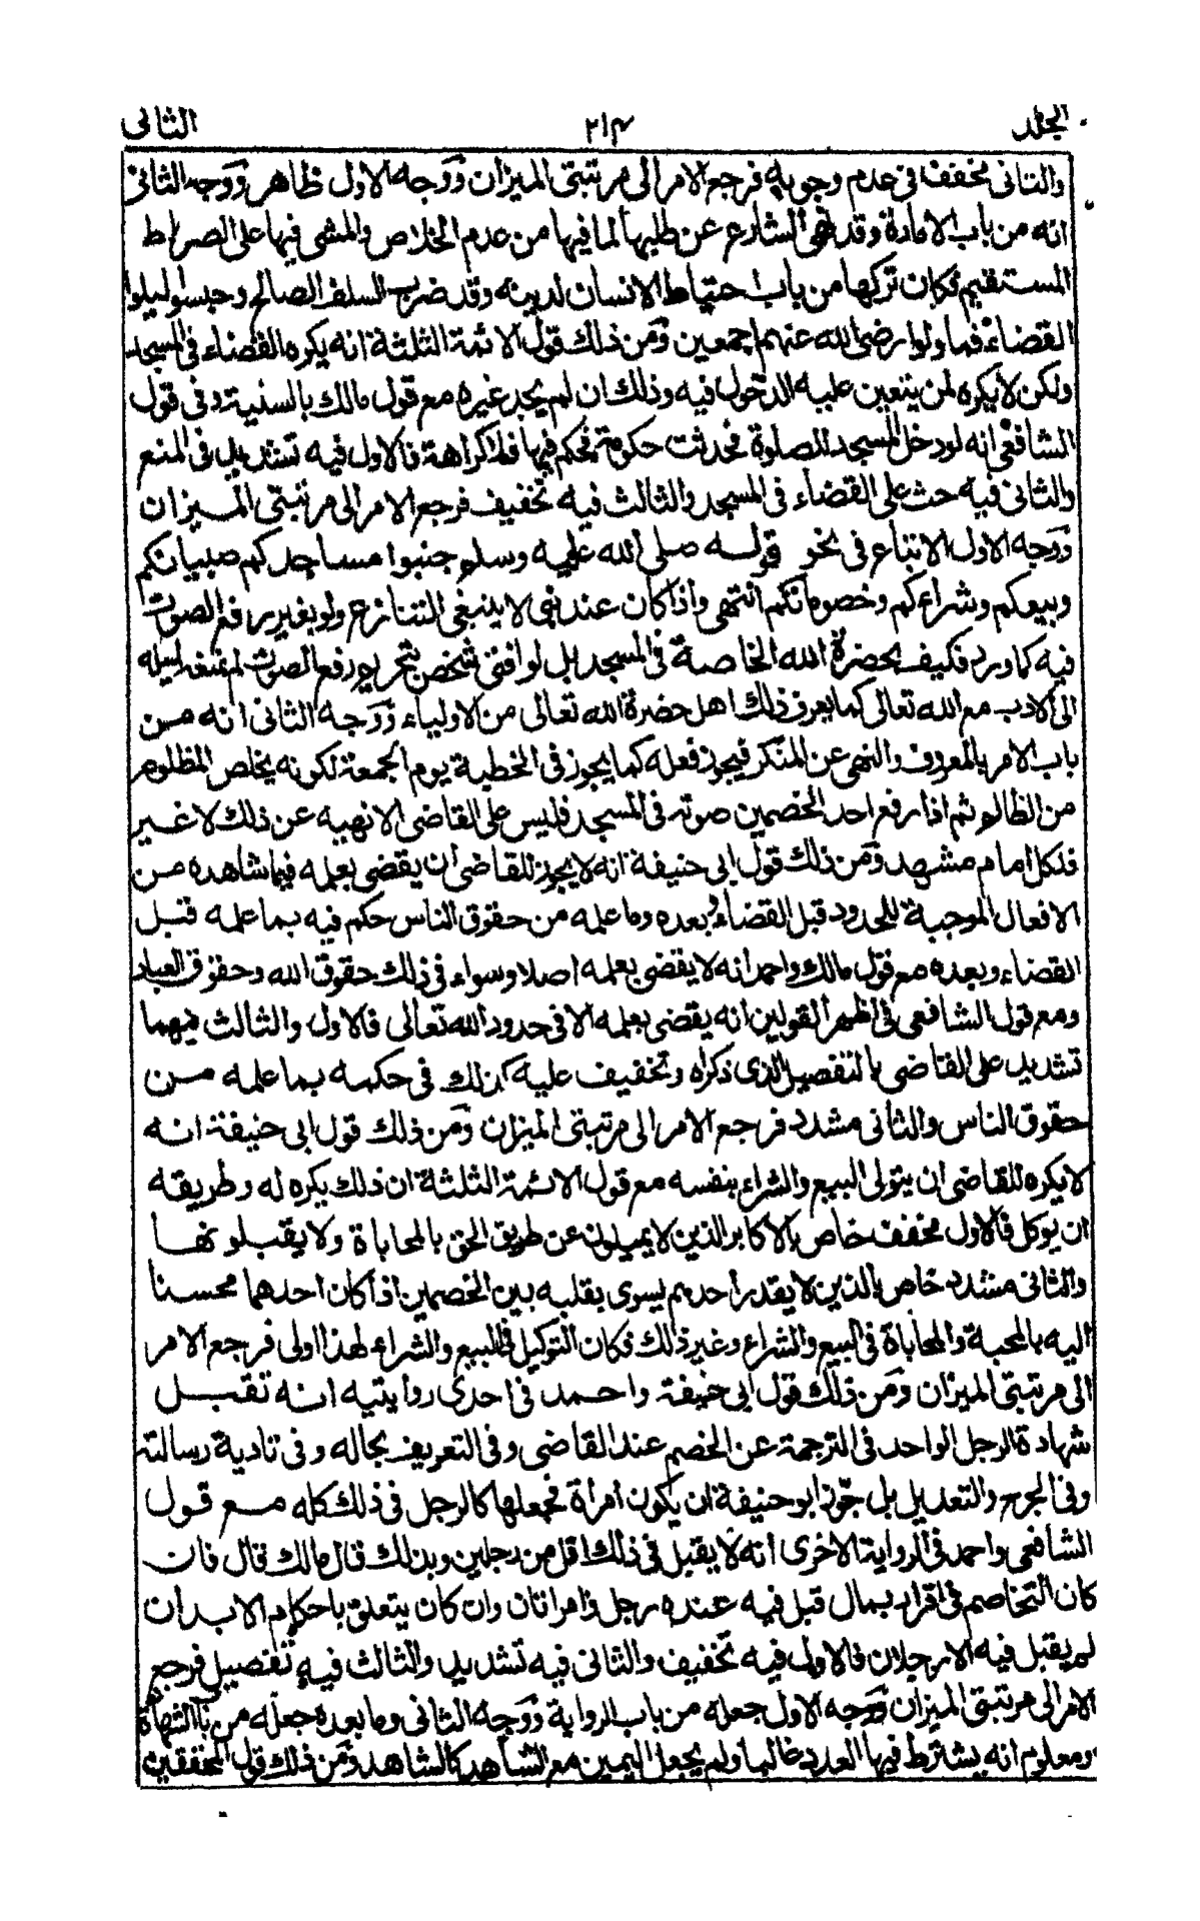 الجلد ٢١٤ الثانى
والثانى مخفف فى عدم وجوبه فرجع الامر الى مرتبتى الميزان ووجه الاول ظاهر ووجه الثانى
انه من باب الامارة وقد نهى الشارع عن طلبها لما فيها من عدم الخلاص والمشى فيها على الصراط
المستقيم فكان تركها من باب احتياط الانسان لدينه وقد ضرب السلف الصالح وحبسوا ليلوا
القضاء فما ولوا رضى الله عنهم اجمعين ومن ذلك قول الائمة الثلثة انه يكره القضاء فى المسجد
ولكن لا يكره لمن يتعين عليه الدخول فيه وذلك ان لم يجد غيره مع قول مالك بالسنية وفى قول
الشافعى انه لو دخل المسجد للصلوة فحدثت حكومة فحكم فيها فلا كراهة فالاول فيه تشديد فى المنع
والثانى فيه حث على القضاء فى المسجد والثالث فيه تخفيف فرجع الامر الى مرتبتى الميزان
ووجه الاول الاتباع فى نحو قوله صلى الله عليه وسلم جنبوا مساجدكم صبيانكم
وبيعكم وشراءكم وخصوماتكم انتهى واذا كان عند نبى لا ينبغى التنازع ولو بغير رفع الصوت
فيه كما ورد فكيف بحضرة الله الخاصة فى المسجد بل لو افتى شخص بتحريم رفع الصوت لم تمنعه لميله
الى الادب مع الله تعالى كما يعرف ذلك اهل حضرة الله تعالى من الاولياء ووجه الثانى انه من
باب الامر بالمعروف والنهى عن المنكر فيجوز فعله كما يجوز فى الخطبة يوم الجمعة لكونه يخلص المظلوم
من الظالم ثم اذا رفع احد الخصمين صوته فى المسجد فليس على القاضى الا نهيه عن ذلك لا غير
فلكل امام مشهد ومن ذلك قول ابى حنيفة انه لا يجوز للقاضى ان يقضى بعلمه فيما شاهده من
الافعال الموجبة للحدود قبل القضاء وبعده وما علمه من حقوق الناس حكم فيه بما علمه قبل
القضاء وبعده مع قول مالك واحمد انه لا يقضى بعلمه اصلا وسواء فى ذلك حقوق الله وحقوق العباد
ومع قول الشافعى فى اظهر القولين انه يقضى بعلمه الا فى حدود الله تعالى فالاول والثالث فيهما
تشديد على القاضى بالتفصيل الذى ذكراه وتخفيف عليه كذلك فى حكمه بما علمه من
حقوق الناس والثانى مشدد فرجع الامر الى مرتبتى الميزان ومن ذلك قول ابى حنيفة انه
لا يكره للقاضى ان يتولى البيع والشراء بنفسه مع قول الائمة الثلثة ان ذلك يكره له وطريقه
ان يوكل فالاول مخفف خاص بالاكابر الذين لا يميلون عن طريق الحق بالمحاباة ولا يقبلونها
والثانى مشدد خاص بالذين لا يقدر احدهم يسوى بقلبه بين الخصمين اذا كان احدهما محسنا
اليه بالمحبة والمحاباة فى البيع والشراء وغير ذلك فكان التوكيل فى البيع والشراء لهذا اولى فرجع الامر
الى مرتبتى الميزان ومن ذلك قول ابى حنيفة واحمد فى احدى روايتيه انه تقبل
شهادة الرجل الواحد فى الترجمة عن الخصم عند القاضى وفى التعريف بحاله وفى تادية رسالته
وفى الجرح والتعديل بل جوز ابو حنيفة ان يكون امرأة فجعلها كالرجل فى ذلك كله مع قول
الشافعى واحمد فى الرواية الاخرى انه لا يقبل فى ذلك اقل من رجلين وبذلك قال مالك قال فان
كان التخاصم فى اقرار بمال قبل فيه عنده رجل وامرأتان وان كان يتعلق باحكام الابدان
لم يقبل فيه الا رجلان فالاول فيه تخفيف والثانى فيه تشديد والثالث فيه تفصيل فرجع
الامر الى مرتبتى الميزان ووجه الاول جعله من باب الرواية ووجه الثانى وما بعده جعله من باب الشهادة
ومعلوم انه يشترط فيها العدد غالبا ولم يجعل اليمين مع الشاهد كالشاهد ومن ذلك قول المحققين